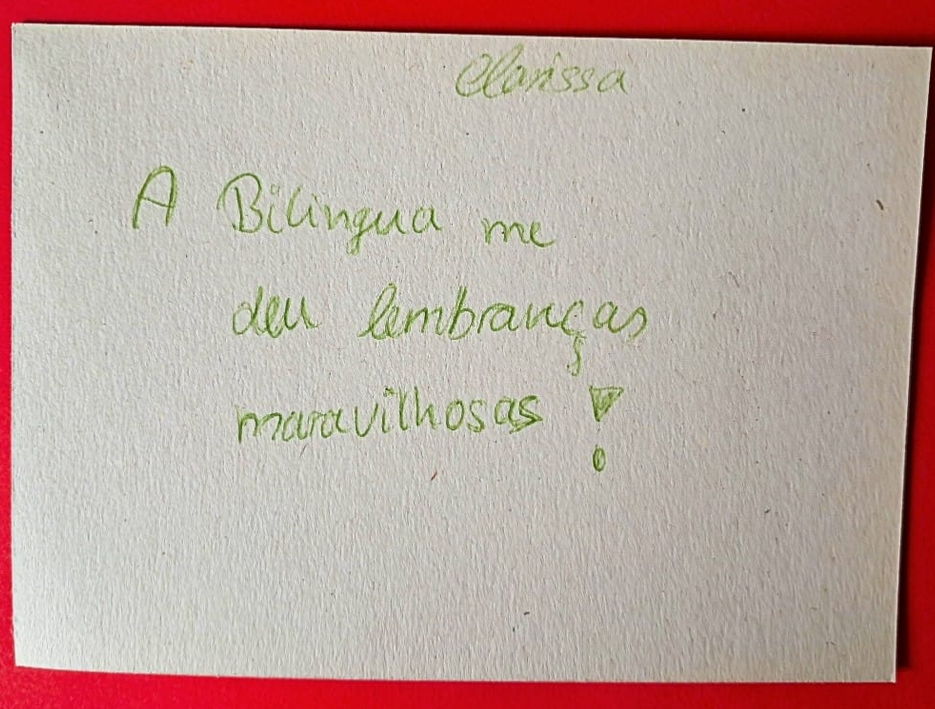 Clarissa
A Bilingua me
deu lembranças
maravilhosas !